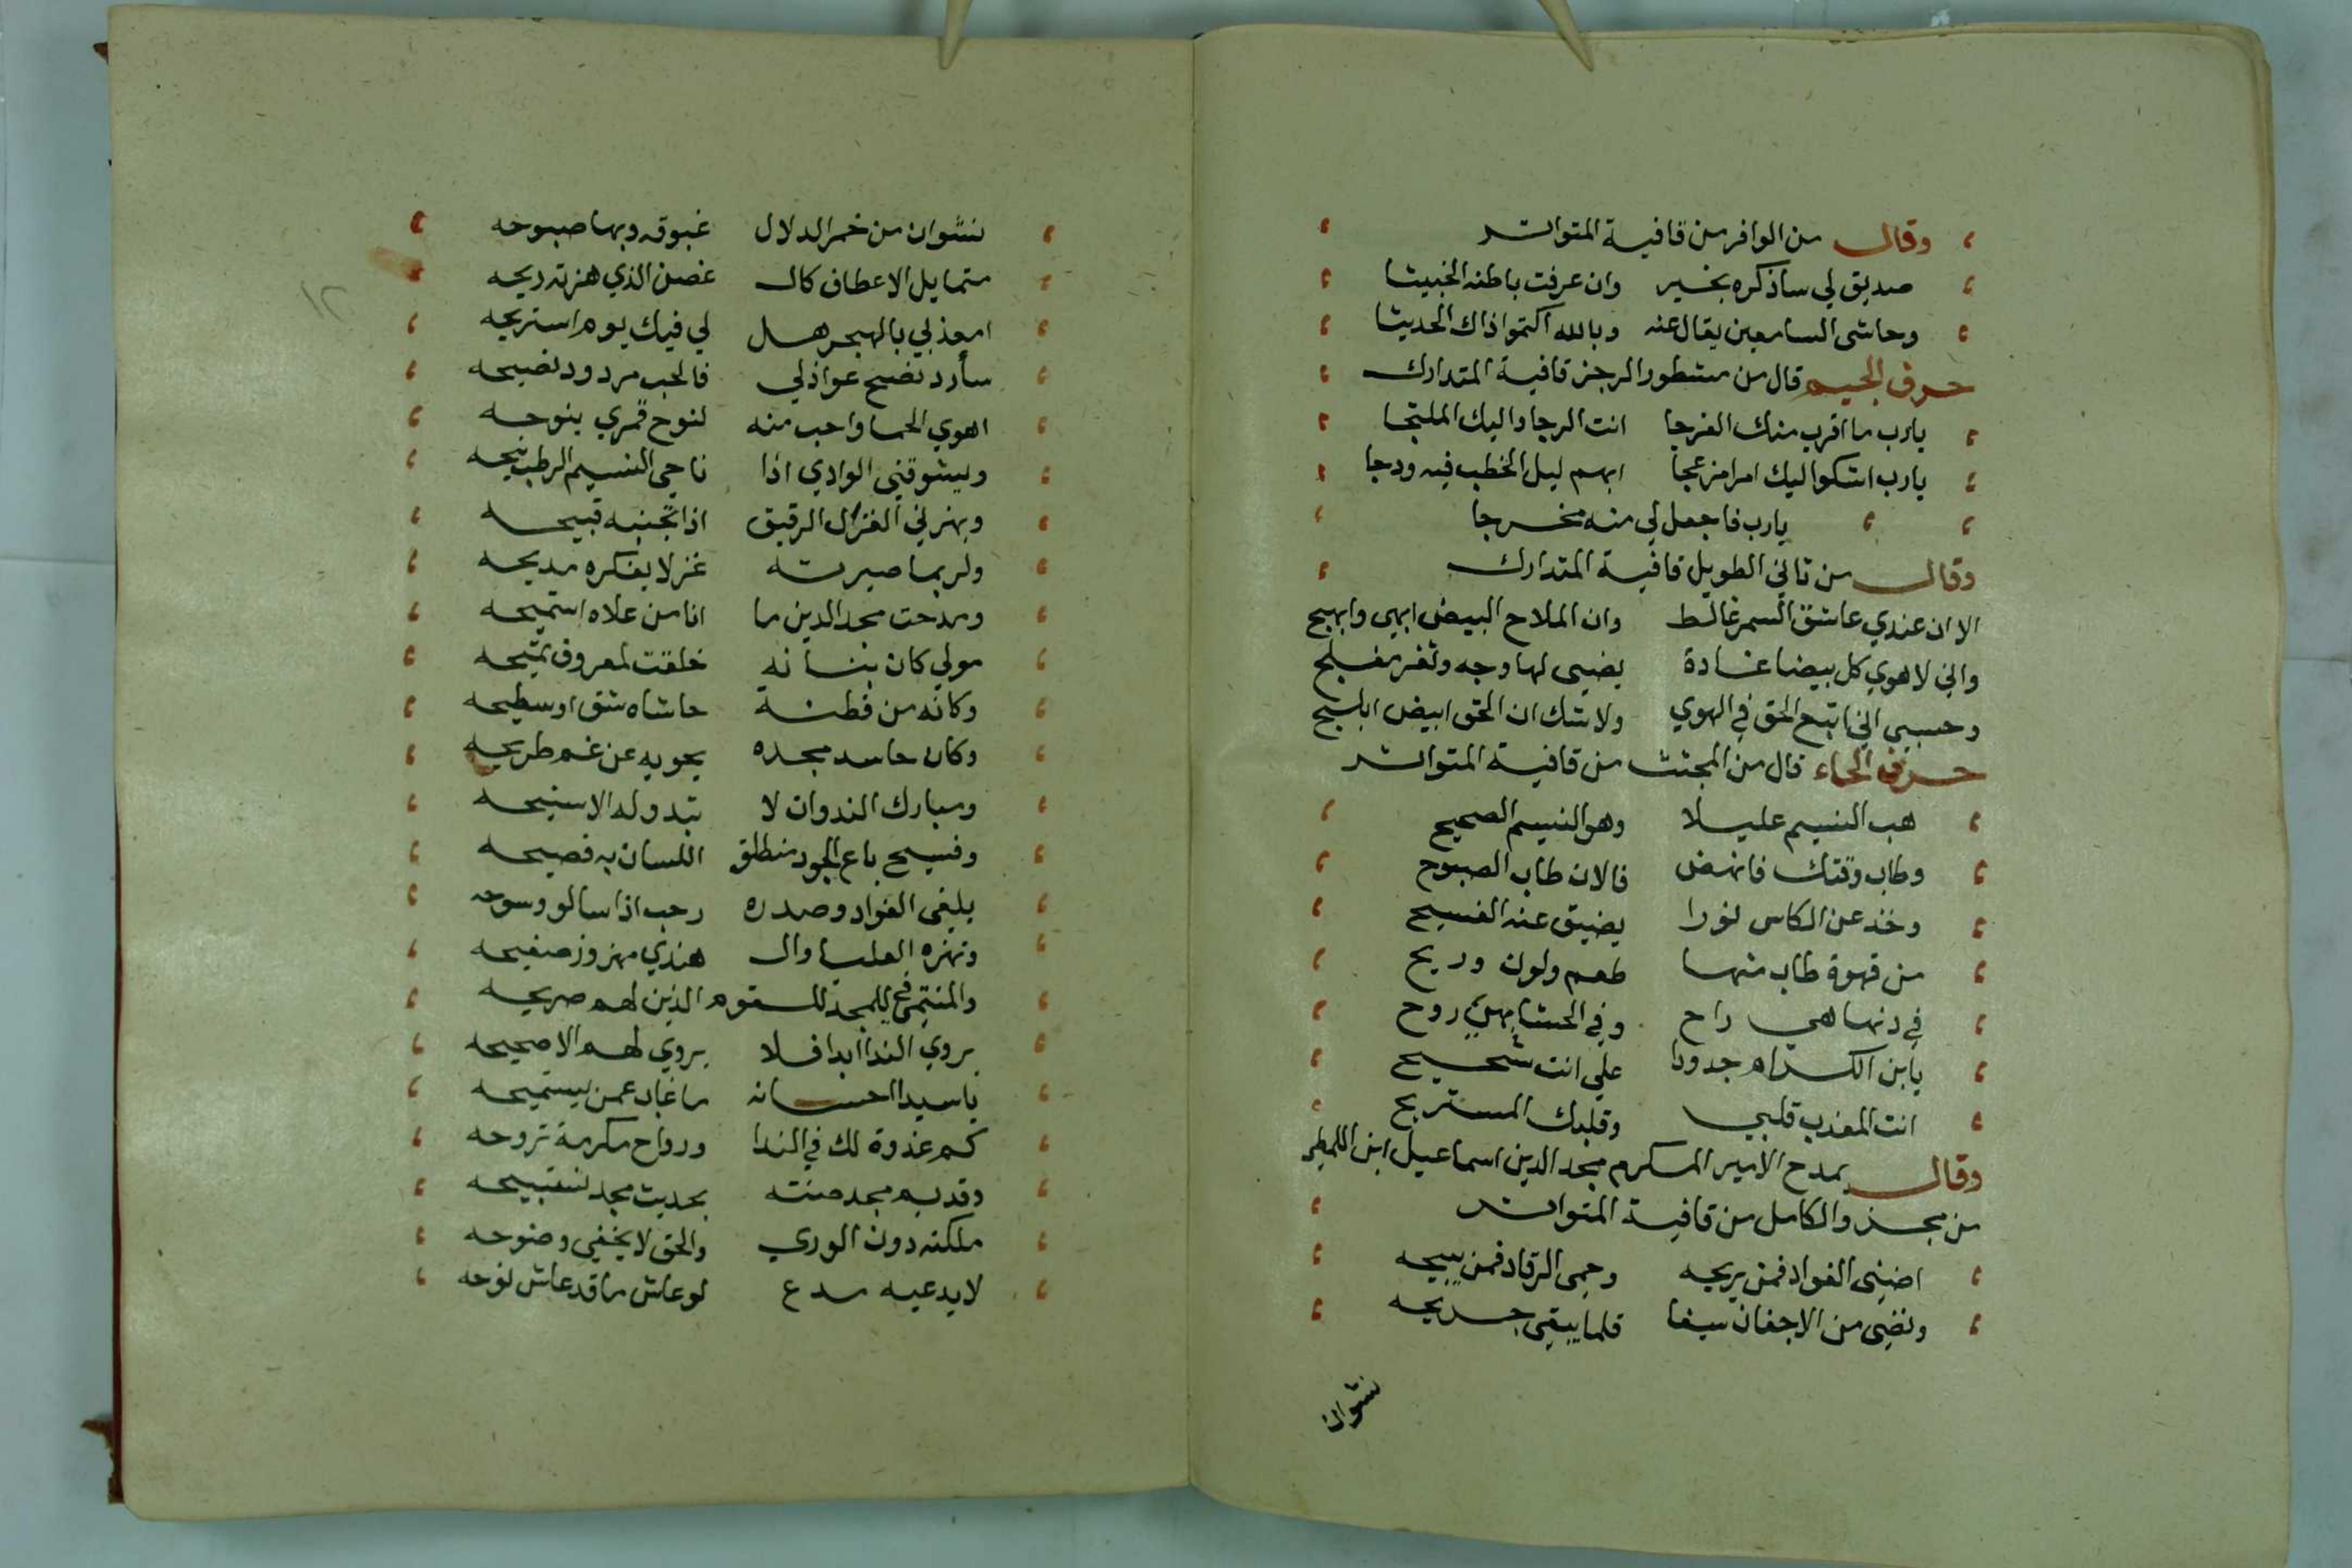 وقال من الوافر من قافية المتواتر
صديق لي ساذكره بخير وان عرفت باطنه الخبيثا
وحاشى السامعين يقال عنه وبالله اكتموا ذاك الحديثا
حرف الجيم قال من مشطور الرجز قافية المتدارك
يارب ما اقرب منك الفرجا انت الرجا واليك الملتجا
يارب اشكوا ليك امرا مزعجا ابهم ليل الخطب فيه ودجا
يارب فاجعل لي منه مخرجا
وقال من ثاني الطويل قافية المتدارك
الا ان عندي عاشق السمر غالط وان الملاح البيض ابهى وابهج
واني لاهوي كل بيضا غادة يضيى لها وجه وثغر مفلج
وحسبي اني اتبع الحق في الهوي ولا شك ان الحق ابيض ابلج
حرف الحاء قال من المجتث من قافية المتواتر
هب النسيم عليلا وهو النسيم الصحيح
وطاب وقتك فانهض فالان طاب الصبوح
وخذ عن الكاس نورا يضيق عنه الفسيح
من قهوة طاب منها طعم ولون وريح
في دنها هي راح وفي الحشا هي روح
يابن الكرام جدودا علي انت شحيح
انت المعذب قلبي وقلبك المستريح
وقال يمدح الامير المكرم مجد الدين اسماعيل ابن اللمطي
من مجزو الكامل من قافية المتواتر
اضنى الفواد فمن يريحه وحمى الرقاد فمن يبيحه
ونضى من الاجفان سيفا قلما يبقى جريحه
نشوان
نشوان من خمر الدلال غبوقه وبها صبوحه
متمايل الاعطاف كال غصن الذي هزته ريحه
امعذبي بالهجر هل لي فيك يوم استريحه
سأرد نصح عواذلي فالحب مردود نصيحه
اهوي الحما واحب منه لنوح قمري ينوحه
ويشوقني الوادي اذا ناجى النسيم الرطب شيحه
ويهزني الغزل الرقيق اذا تجنبه قبيحه
ولربما صيرته غزلا يفكره مديحه
ومدحت مجد الدين ما انا من علاه استميحه
مولي كان بنانه خلقت لمعروف تميحه
وكانه من فطنة حاشاه شق او سطيحه
وكان حاسد مجده يحويه عن غم طريحه
ومبارك الندوات لا تبدو له الا سنيحه
وفسيح باع الجود منطلق اللسان به فصيحه
يلفى الفواد وصدره رحب اذا سالو وسوحه
وتهزه العليا وال هندي مهزوز صفيحه
والمنتمى للمجد للقوم الذين لهم صريحه
يروي الندا ابدا فلا يروي لهم الا صحيحه
ياسيدا احسانه ما غاب عمن يستميحه
كم غدوة لك في الندا ورواح مكرمة تروحه
وقديم مجد صنته بحديث مجد تستبيحه
ملكته دون الوري والحق لا يخفى وضوحه
لا يدعيه مدع لو عاش ما قد عاش نوحه
١٢